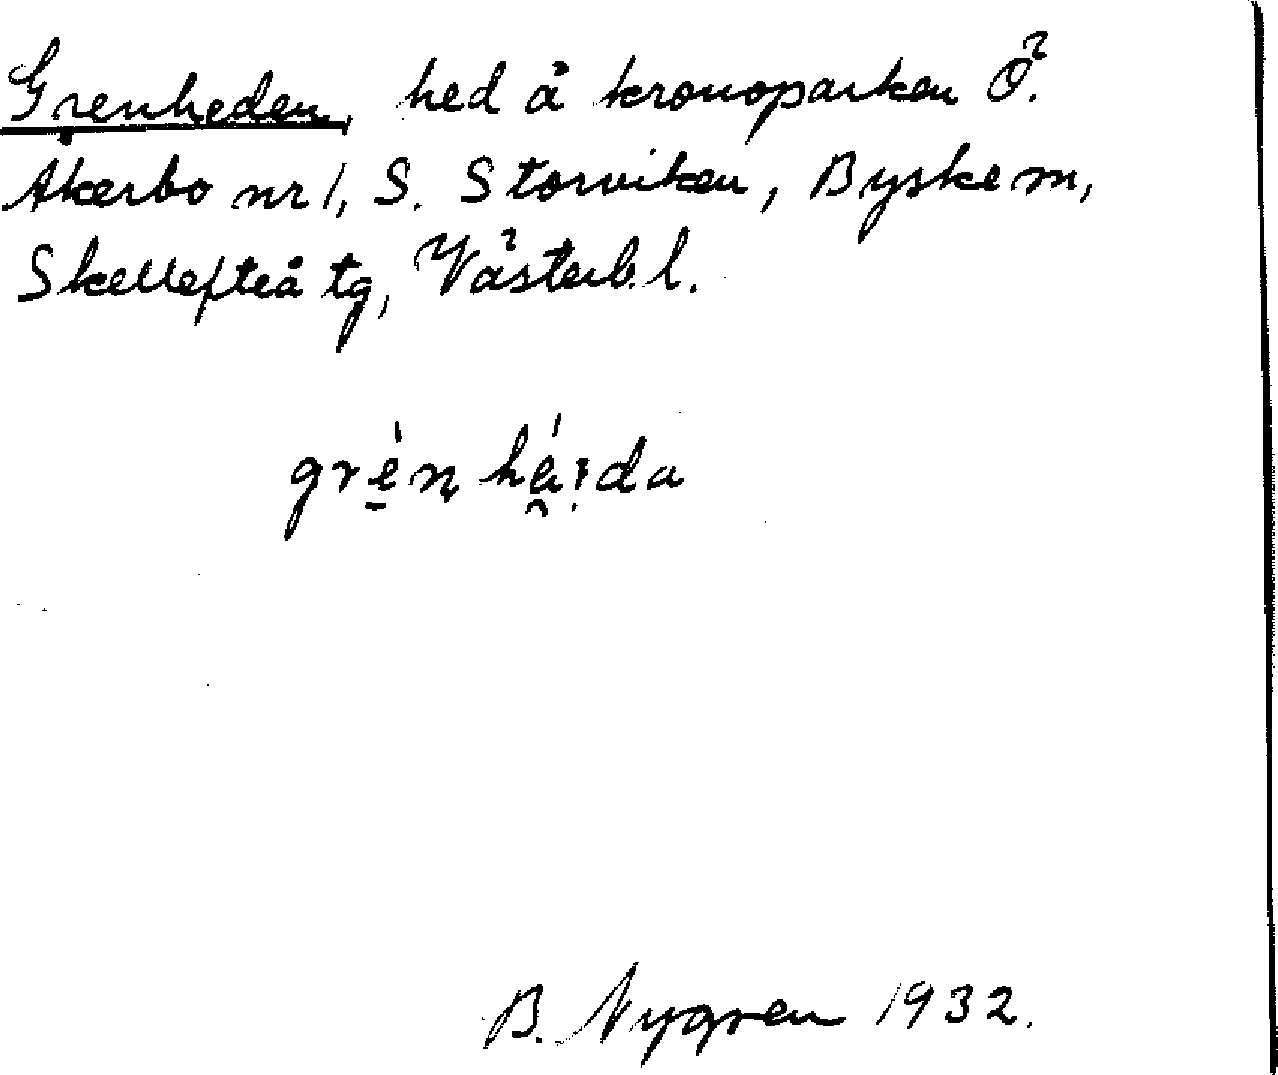 Grenheden, hed å kronoparken Ö.
Åkerbo nr 1, S. Storviken, Byske m,
Skellefteå tg, Västerb. l.
grèn héi̯da
B. Nygren 1932.